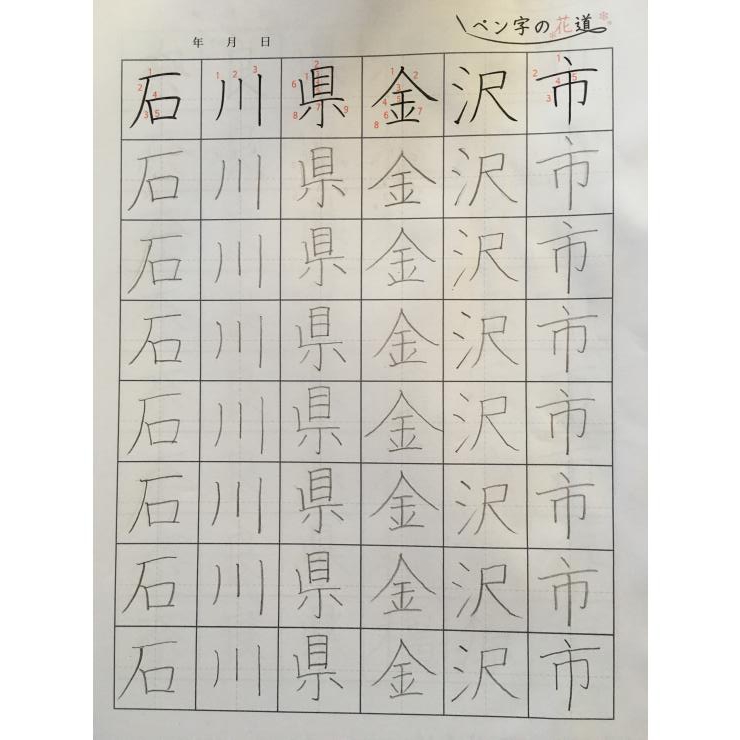 年 月 日 ペン字の花道
石川県金沢市
石川県金沢市
石川県金沢市
石川県金沢市
石川県金沢市
石川県金沢市
石川県金沢市
石川県金沢市